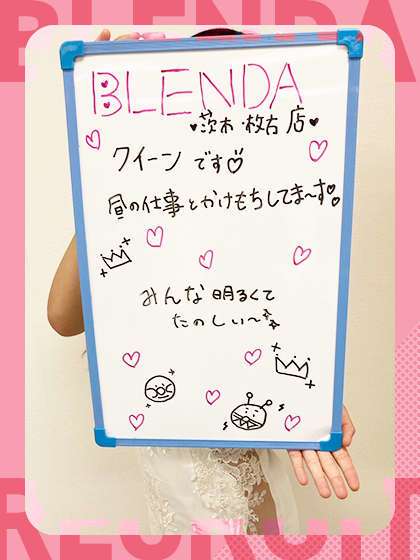 BLENDA
BLENDA
♥茨木・枚方店♥
クイーンです♡
昼の仕事とかけもちしてま〜す♡
みんな明るくて
たのしい〜
RECRUIT